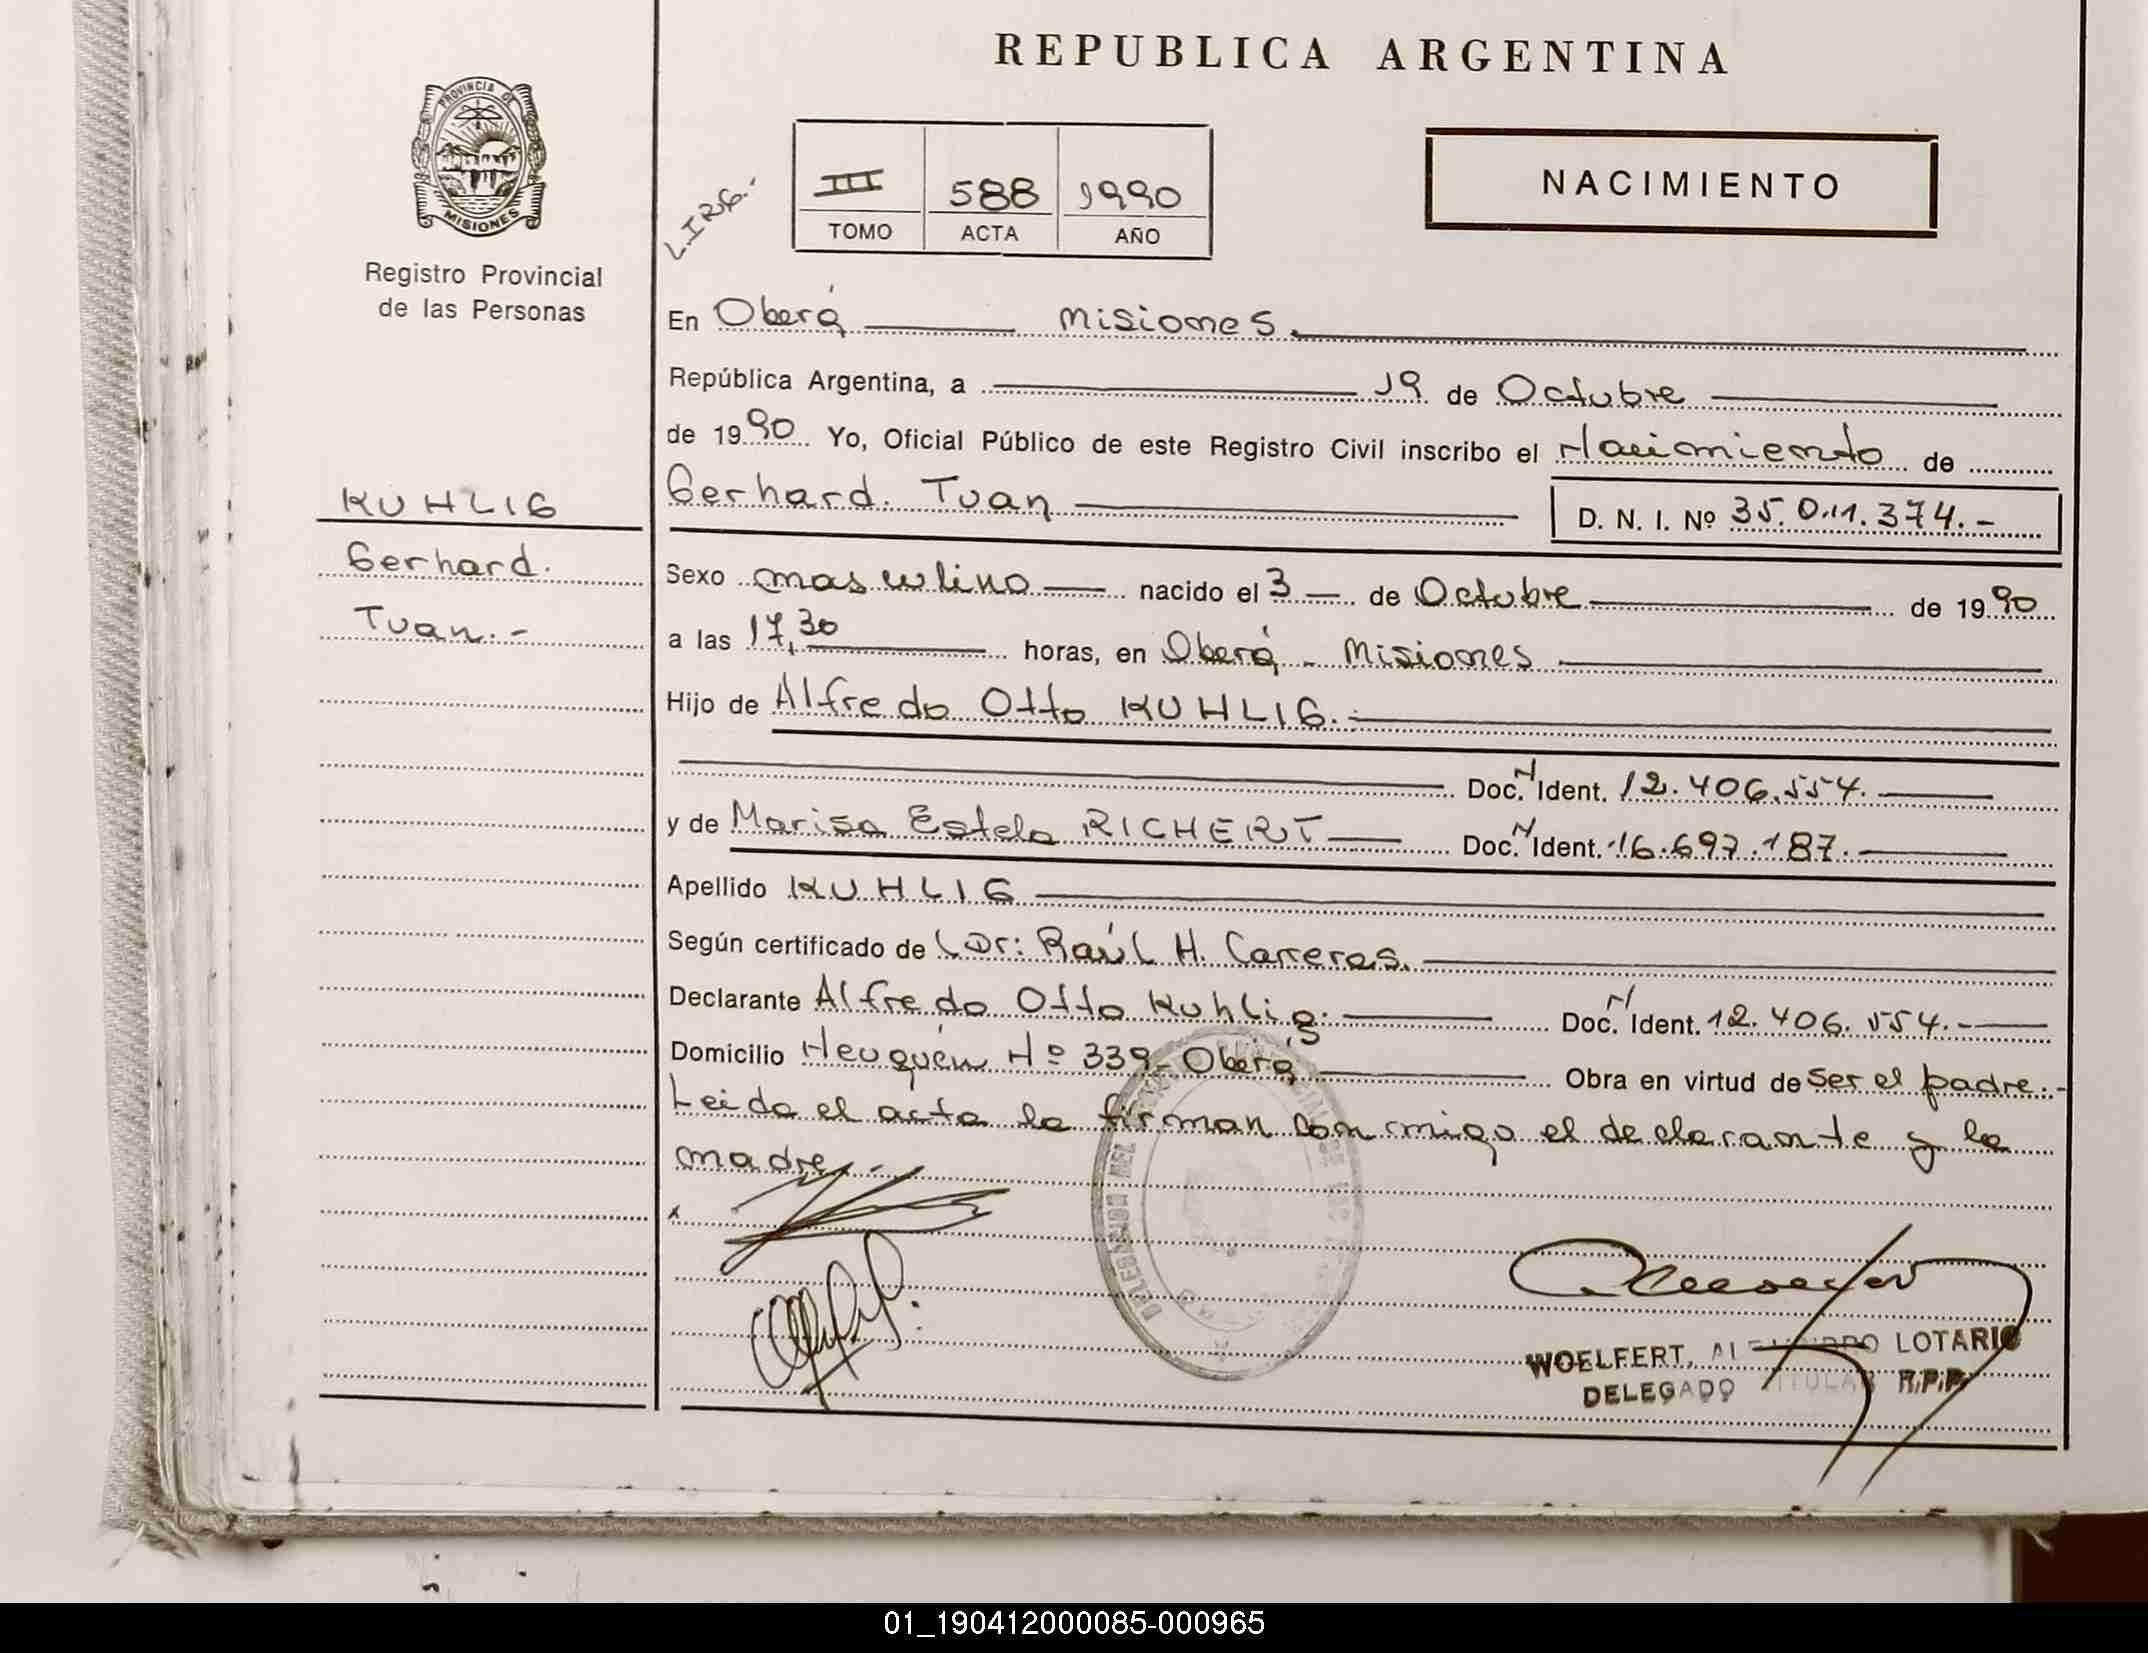 REPUBLICA ARGENTINA
PROVINCIA DE
MISIONES
Registro Provincial
de las Personas
III 588 1990
TOMO ACTA AÑO
NACIMIENTO
En Oberá misiones.
República Argentina, a 19 de Octubre
de 1990 Yo, Oficial Público de este Registro Civil inscribo el Nacimiento de
Gerhard. Ivan D. N. I. Nº 35.011.374.-
KUHLIG
Gerhard.
Ivan.-
Sexo masculino nacido el 3 de Octubre de 1990
a las 17,30 horas, en Oberá - Misiones
Hijo de Alfredo Otto KUHLIG.-
Doc. N Ident. 12.406.554.
y de Marisa Estela RICHERT Doc. N Ident. 16.697.187.
Apellido KUHLIG
Según certificado de Dr: Raúl H. Carreras.
Declarante Alfredo Otto Kuhlig. Doc. N Ident. 12.406.554.-
Domicilio Neuquén Nº 339- Oberá Obra en virtud de ser el padre.-
Leida el acta la firman conmigo el declarante y la
madre.-
DELEGACION DEL
WOELFERT, LOTARIO
DELEGADO TITULAR R.P.P.
01_190412000085-000965